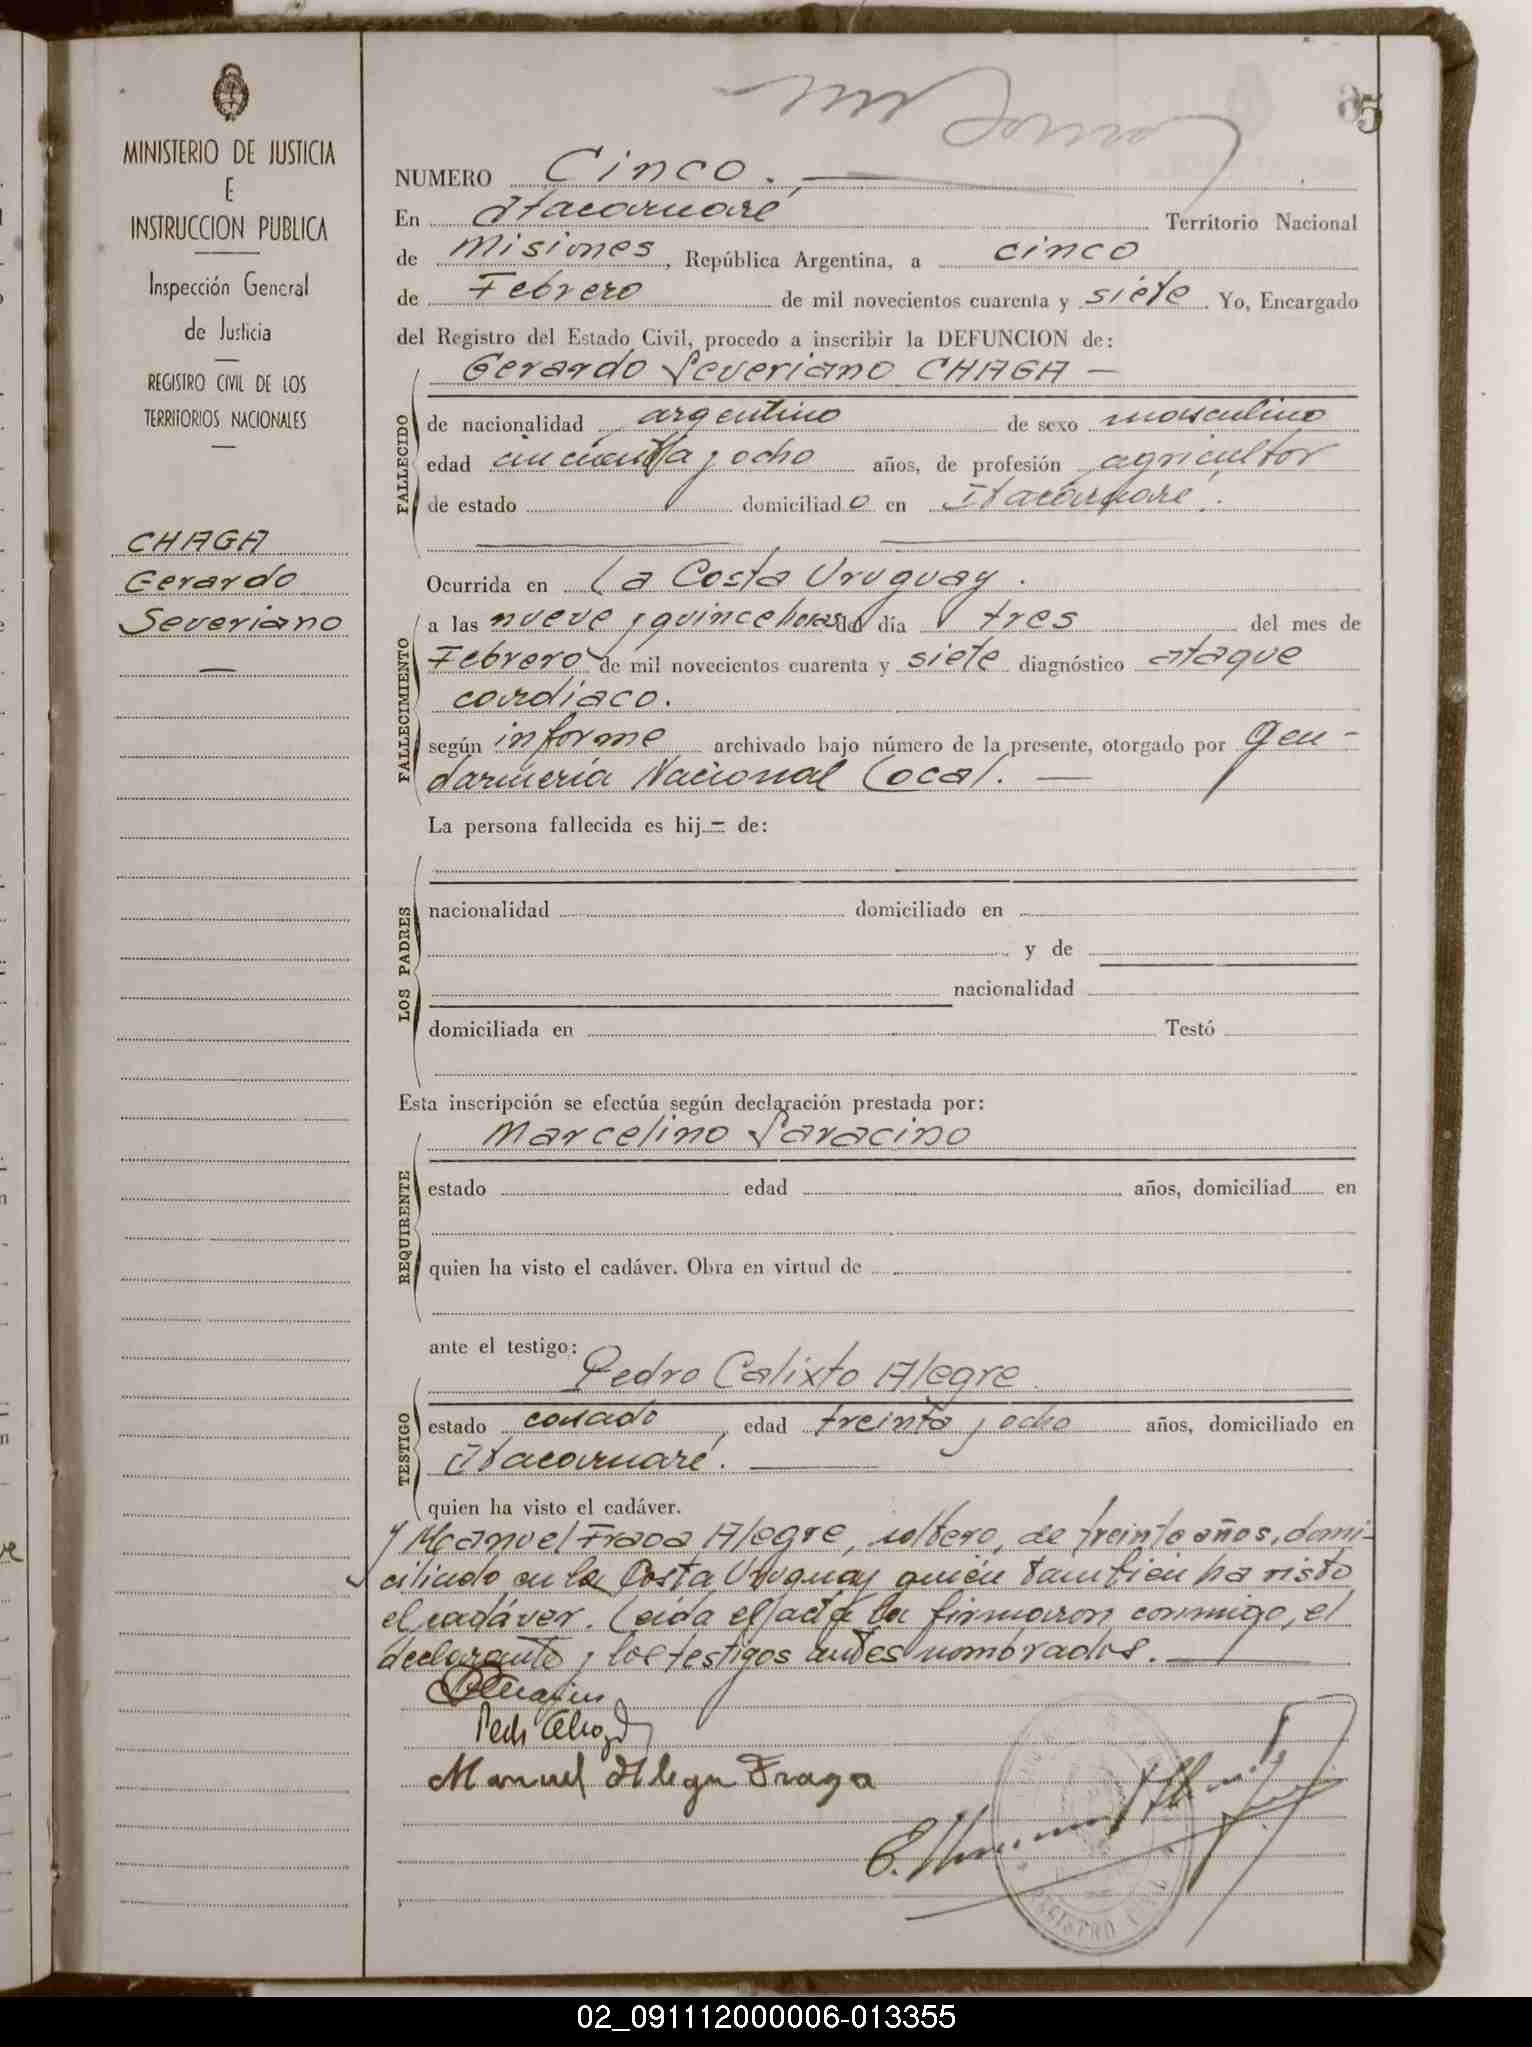 5
MINISTERIO DE JUSTICIA
E
INSTRUCCION PUBLICA
Inspección General
de Justicia
REGISTRO CIVIL DE LOS
TERRITORIOS NACIONALES
CHAGA
Gerardo
Severiano
NUMERO Cinco.
En Itacaruaré Territorio Nacional
de Misiones, República Argentina, a cinco
de Febrero de mil novecientos cuarenta y siete Yo, Encargado
del Registro del Estado Civil, procedo a inscribir la DEFUNCION de:
Gerardo Severiano CHAGA —
FALLECIDO
de nacionalidad argentino de sexo masculino
edad cincuenta y ocho años, de profesión agricultor
de estado domiciliado en Itacaruaré.
Ocurrida en La Costa Uruguay.
FALLECIMIENTO
a las nueve y quince horas del día tres del mes de
Febrero de mil novecientos cuarenta y siete diagnóstico ataque
cardiaco.
según informe archivado bajo número de la presente, otorgado por Gen-
darmería Nacional Local. —
La persona fallecida es hij— de:
LOS PADRES
nacionalidad domiciliado en
y de
nacionalidad
domiciliada en Testó
Esta inscripción se efectúa según declaración prestada por:
Marcelino Saracino
REQUIRENTE
estado edad años, domiciliad en
quien ha visto el cadáver. Obra en virtud de
ante el testigo:
Pedro Calixto Alegre
TESTIGO
estado casado, edad treinta y ocho años, domiciliado en
Itacaruaré. —
quien ha visto el cadáver.
y Manuel Fraga Alegre, soltero, de treinta años, domi-
ciliado en la Costa Uruguay quién también ha visto
el cadáver. Leida el acta la firmaron conmigo, el
declarante y los testigos antes nombrados. —
Manuel Alegre Fraga
REGISTRO CIVIL
02_091112000006-013355